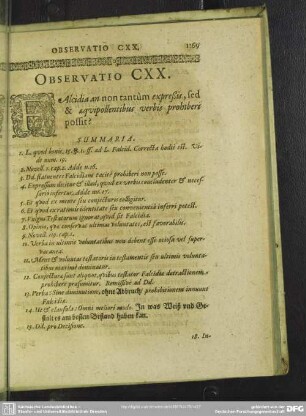 OBSERVATIO CXX. 1169
OBSERVATIO CXX.
Falcidia an non tantùm expressis, sed
& æquipollentibus verbis prohiberi
possit?
SUMMARIA.
1. L. quod bonis, 15. §. 1. ff. ad L. Falcid. Correcta hodie est. Vi-
de num. 19.
2. Novell. 1. cap. 2. Adde n. 16.
3. Dd. statuentes Falcidiam tacitè prohiberi non posse.
4. Expressum dicitur & illud, quod ex verbis concludenter & neces-
sariò infertur. Adde nu. 17.
5. Et quod ex mente seu conjecturis colligitur.
6. Et quod ex rationis identitate seu convenientia inferri potest.
7. Vulgus Testatorum ignorat, quid sit Falcidia.
8. Opinio, quæ conservat ultimas voluntates, est favorabilis.
9. Novell. 119. cap. 1.
10. Verba in ultimis voluntatibus non debent esse otiosa vel super-
vacanea.
11. Mens & voluntas testatoris in testamentis seu ultimis volunta-
tibus maximè dominatur.
12. Conjectura sunt aliquot, quibus testator Falcidiæ detractionem,
prohibere præsumitur. Remissivè ad Dd.
13. Verba: Sine diminutione, ohne Abbruch/ prohibitionem innuunt
Falcidiæ.
14. Ut & clausula: Omni meliori modo. In was Weiß und Ge-
stalt es am besten Bestand haben kan.
15. Ob. pro Decisione.
18. In-